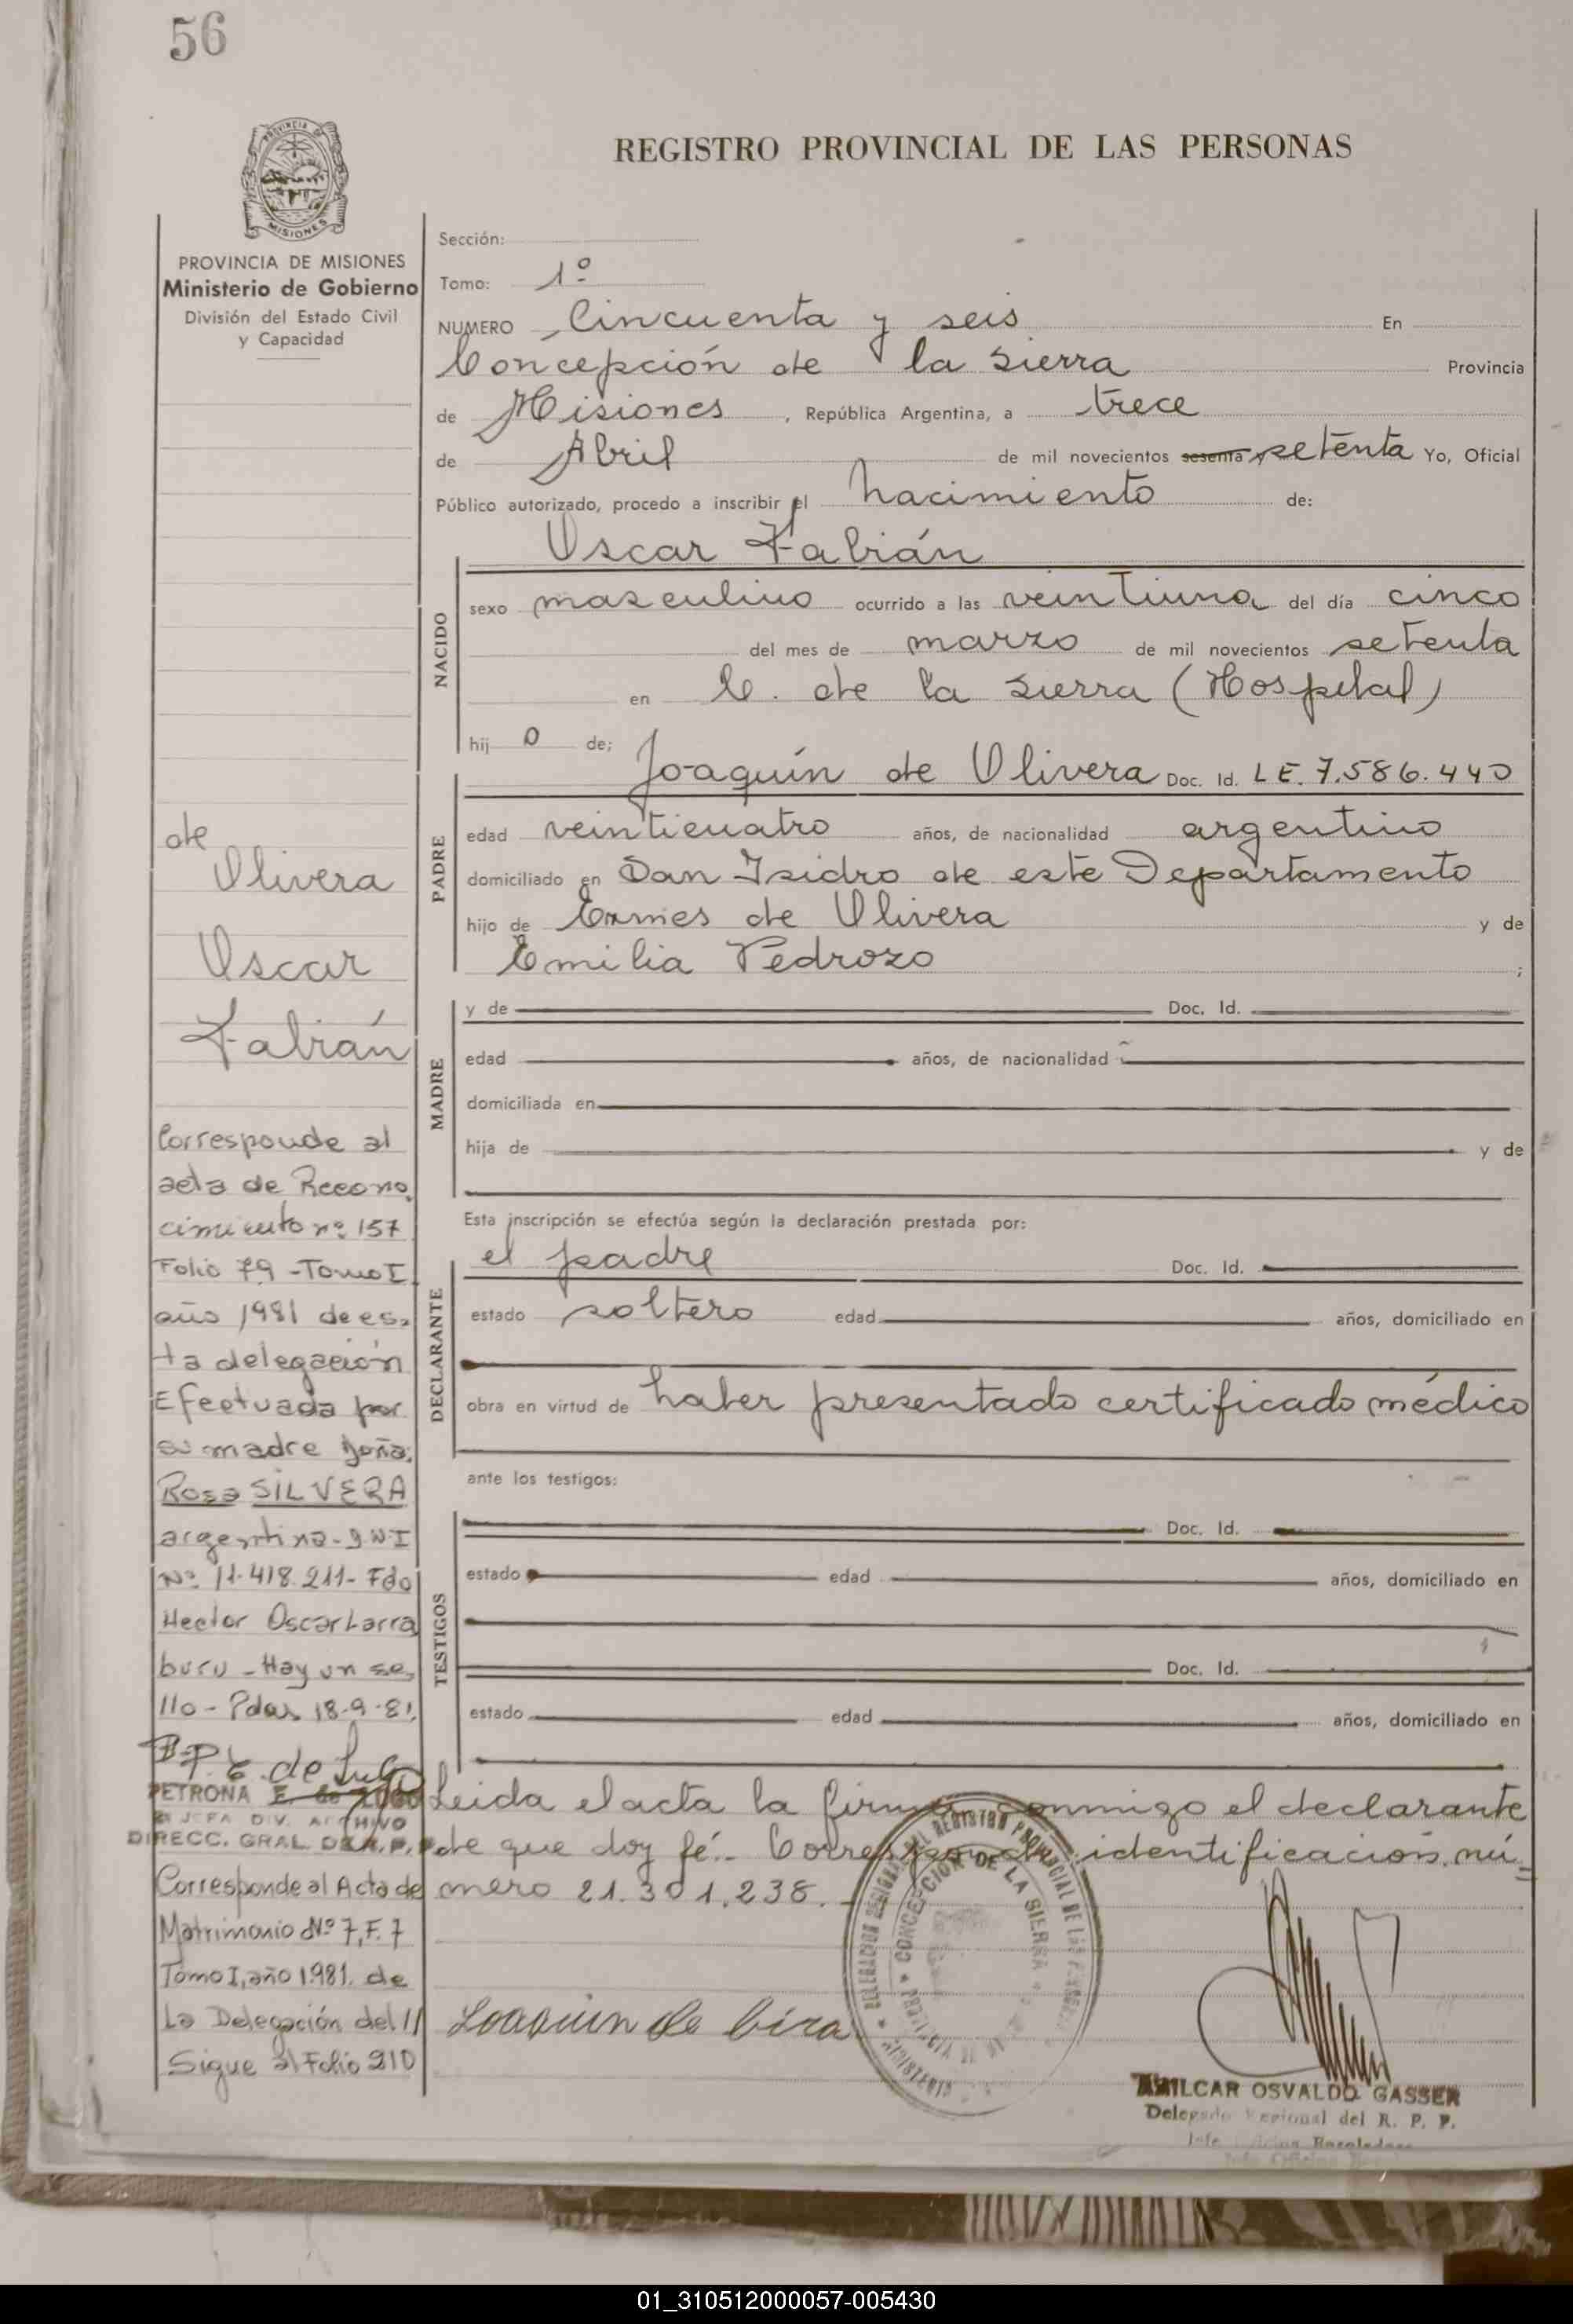 56
REGISTRO PROVINCIAL DE LAS PERSONAS
PROVINCIA DE
MISIONES
PROVINCIA DE MISIONES
Ministerio de Gobierno
División del Estado Civil
y Capacidad
Sección:
Tomo: 1º
NUMERO Cincuenta y seis En
Concepción de la Sierra Provincia
de Misiones, República Argentina, a trece
de Abril de mil novecientos sesenta y setenta Yo, Oficial
Público autorizado, procedo a inscribir el nacimiento de:
Oscar Fabián
NACIDO
sexo masculino ocurrido a las veintiuna del día cinco
del mes de marzo de mil novecientos setenta
en C. de la Sierra (Hospital)
hij o de;
PADRE
Joaquín de Olivera Doc. Id. LE. 7.586.440
edad veinticuatro años, de nacionalidad argentino
domiciliado en San Isidro de este Departamento
hijo de Ermes de Olivera y de
Emilia Pedrozo ;
MADRE
y de Doc. Id.
edad años, de nacionalidad
domiciliada en
hija de y de
Esta inscripción se efectúa según la declaración prestada por:
DECLARANTE
el padre Doc. Id.
estado soltero edad años, domiciliado en
obra en virtud de haber presentado certificado médico
ante los testigos:
TESTIGOS
Doc. Id.
estado edad años, domiciliado en
Doc. Id.
estado edad años, domiciliado en
Leida el acta la firma conmigo el declarante
de que doy fé.- Corresponde identificación nú=
mero 21.301.238.-
Joaquin de
DELEGACION REGIONAL DEL REGISTRO PROVINCIAL DE LAS PERSONAS
CONCEPCION DE LA SIERRA
MINISTERIO
AMILCAR OSVALDO GASSER
Delegado Regional del R. P. P.
de
Olivera
Oscar
Fabián
Corresponde al
acta de Recono
cimiento nº 157
Folio 79 - Tomo I
año 1981 de es-
ta delegación
Efectuada por
su madre Doña:
Rosa SILVERA
argentina - DNI
Nº 11.418.211- Fdo
Hector Oscar Larra
buru - Hay un se-
llo - Pdas 18-9-81.
PETRONA E. de
JEFA DIV. ARCHIVO
DIRECC. GRAL DE R.P.P.
Corresponde al Acta de
Matrimonio Nº 7, F. 7
Tomo I, año 1.981. de
La Delegación del 11
Sigue al Folio 210
01_310512000057-005430